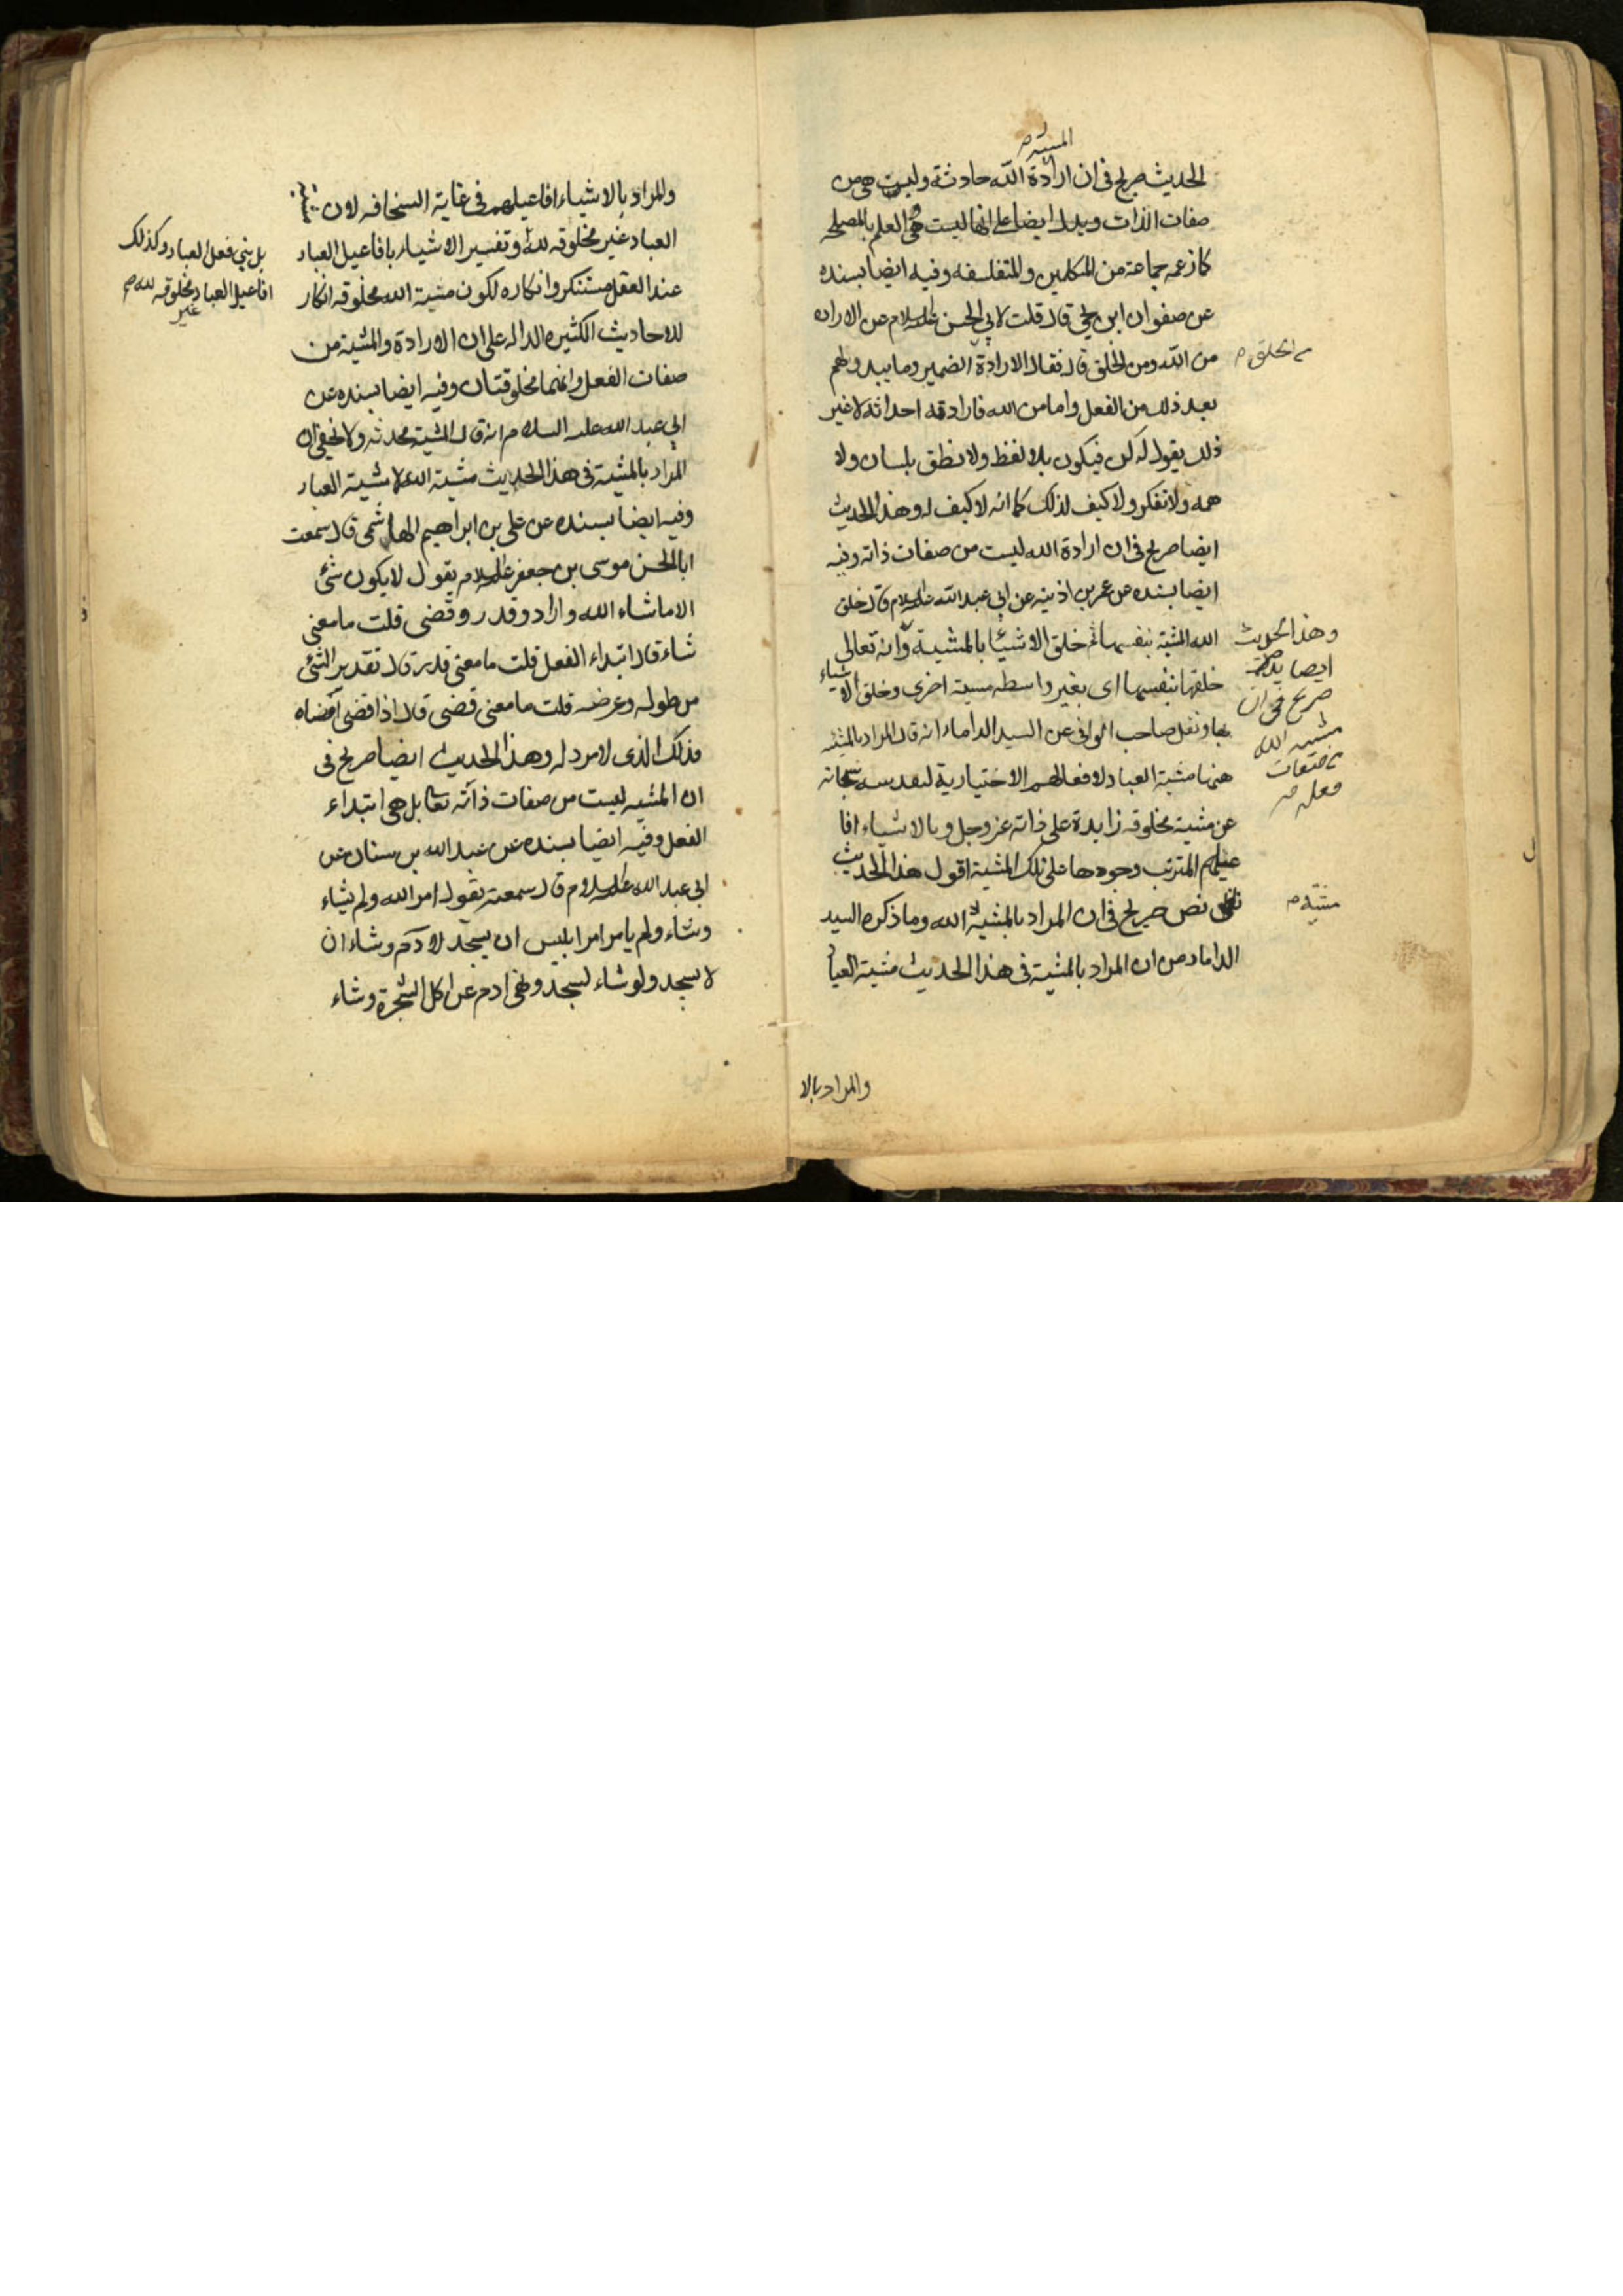 المشية م
الحديث صريح في ان ارادة الله حادثة وليست هي من
صفات الذات ويدل ايضا على انها ليست هي العلم بالمصلحه
كما زعمه جماعة من المتكلمين والمتفلسفه وفيه ايضا بسنده
عن صفوان ابن يحيى قال قلت لابي الحسن عليه السلام عن الاراده
من الله ومن الخلق قال فقال الارادة الضمير وما يبدو لهم
من الخلق م
بعد ذلك من الفعل واما من الله فارادته احداثه لا غير
ذلك يقول له كن فيكون بلا لفظ ولا نطق بلسان ولا
همه ولا تفكر ولا كيف لذلك كما انه لا كيف له وهذا الحديث
ايضا صريح في ان ارادة الله ليست من صفات ذاته وفيه
ايضا بسنده عن عمر بن اذينه عن ابي عبد الله عليه السلام قال خلق
الله المشية بنفسها ثم خلق الاشياء بالمشية وانه تعالى
خلقها بنفسها اى بغير واسطه مشية اخرى وخلق الاشياء
وهذا الحديث
ايضا
صريح في ان
مشيه الله
من صفات
فعله م
بها ونقل صاحب الوافى عن السيد الداماد انه قال المراد بالمشيه
هنا مشية العباد لافعالهم الاختيارية لتقدسه سبحانه
عن مشية مخلوقه زايدة على ذاته عز وجل وبالاشياء افا
عيلهم المترتب وجودها على تلك المشية اقول هذا الحديث
نص صريح في ان المراد بالمشية الله وما ذكره السيد
مشية م
الداماد من ان المراد بالمشية في هذا الحديث مشية العباد
والمراد بالا
والمراد بالاشياء افاعيلهم في غاية السخافه لان
العباد غير مخلوقه لله وتفسير الاشياء بافاعيل العباد
بل هي فعل العباد وكذلك
افاعيل العباد غير مخلوقه لله م
عند العقل مستنكر وانكاره لكون مشية الله مخلوقه انكار
للاحاديث الكثيره الداله على ان الارادة والمشية من
صفات الفعل وانهما مخلوقتان وفيه ايضا بسنده عن
ابي عبد الله عليه السلام انه قال المشية محدثه ولا يخفى ان
المراد بالمشية في هذا الحديث مشية الله لا مشية العباد
وفيه ايضا بسنده عن على بن ابراهيم الهاشمى قال سمعت
ابا الحسن موسى بن جعفر عليه السلام يقول لا يكون شئ
الا ما شاء الله واراد وقدر وقضى قلت ما معنى
شاء قال ابتداء الفعل قلت ما معنى قدر قال تقدير الشئ
من طوله وعرضه قلت ما معنى قضى قال اذا قضى امضاه
فذلك الذى لا مرد له وهذا الحديث ايضا صريح في
ان المشيه ليست من صفات ذاته تعا بل هي ابتداء
الفعل وفيه ايضا بسنده عن عبد الله بن سنان عن
ابي عبد الله عليه السلام قال سمعته يقول امر الله ولم يشاء
وشاء ولم يامر امر ابليس ان يسجد لادم وشاء ان
لا يسجد ولو شاء لسجد ونهى ادم عن اكل الشجرة وشاء